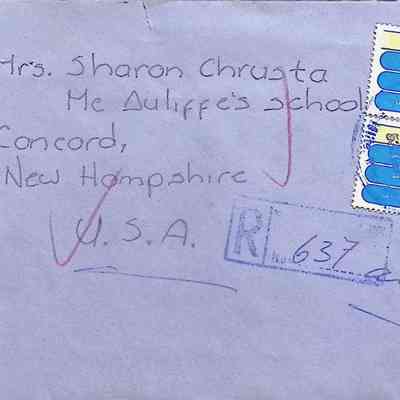 Mrs. Sharon Chrusta
Mc Auliffe's school
Concord,
New Hampshire
U.S.A.
R No 637